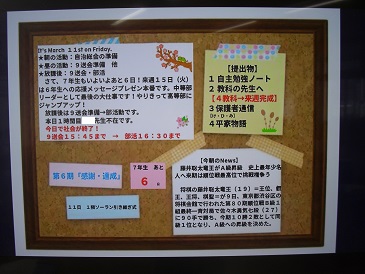 It's March 11st on Friday.
★朝の活動：自治総会の準備
★昼の活動：９送会準備　他
★放課後：９送会・部活
さて、７年生もいよいよあと６日！来週１５日（火）
は６年生への応援メッセージプレゼン本番です。中等部
リーダーとして最後の大仕事です！やりきって高等部に
ジャンプアップ！
放課後は９送会準備→部活動です。
本日１時間目 先生不在です。
今日で社会が終了！
９送会１５：４５まで　→　部活１６：３０まで
【提出物】
１ 自主勉強ノート
２ 教科の先生へ
【４教科→来週完成】
３ 保護者通信
４ 平家物語
第６期「感謝・達成」
７年生　あと
６
１１日　１組ソーラン引き継ぎ式
【今朝のNews】
藤井聡太竜王がＡ級昇級　史上最年少名
人へ来期は順位戦最高位で挑戦権争う
将棋の藤井聡太竜王（１９）＝王位、叡
王、王将、棋聖＝が９日、東京都渋谷区の
将棋会館で行われた第８０期順位戦Ｂ級１
組最終一斉対局で佐々木勇気七段（２７）
に９０手で勝ち、今期１０勝２敗として同
級１位となり、Ａ級への昇級を決めた。